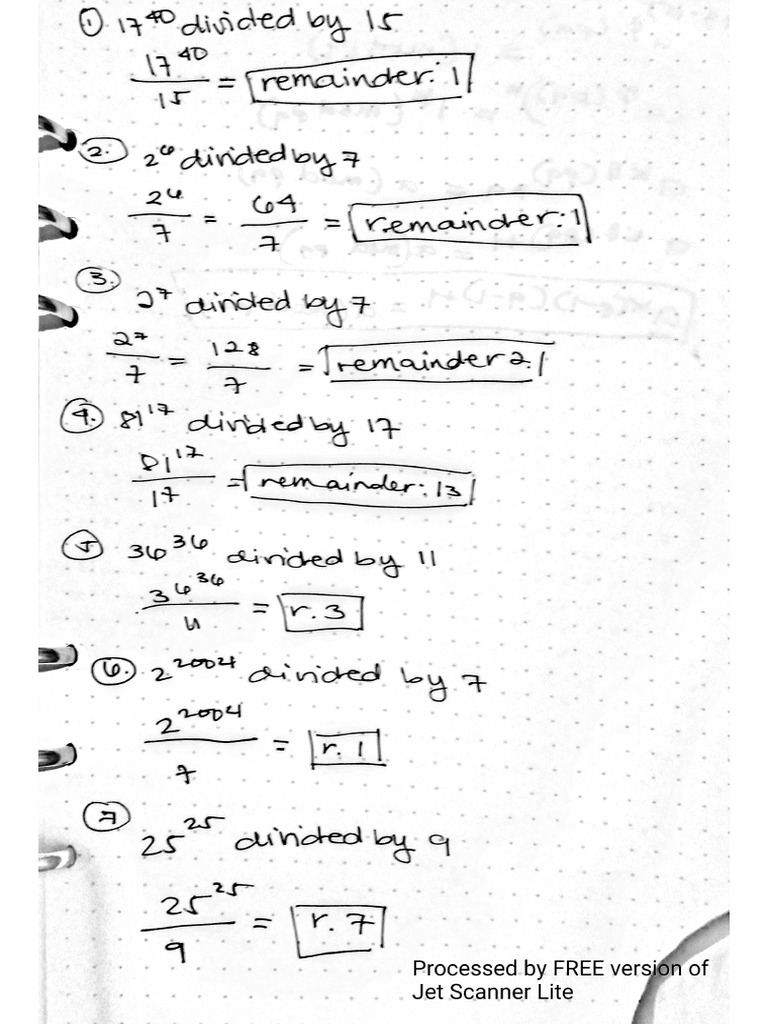 ① 17^40 divided by 15
17^40 / 15 = remainder: 1
②. 2^6 divided by 7
2^6 / 7 = 64 / 7 = remainder: 1
③. 2^7 divided by 7
2^7 / 7 = 128 / 7 = remainder 2.
④. 81^17 divided by 17
81^17 / 17 = remainder: 13
⑤ 36^36 divided by 11
36^36 / 11 = r. 3
⑥. 2^2004 divided by 7
2^2004 / 7 = r. 1
⑦ 25^25 divided by 9
25^25 / 9 = r. 7
Processed by FREE version of
Jet Scanner Lite